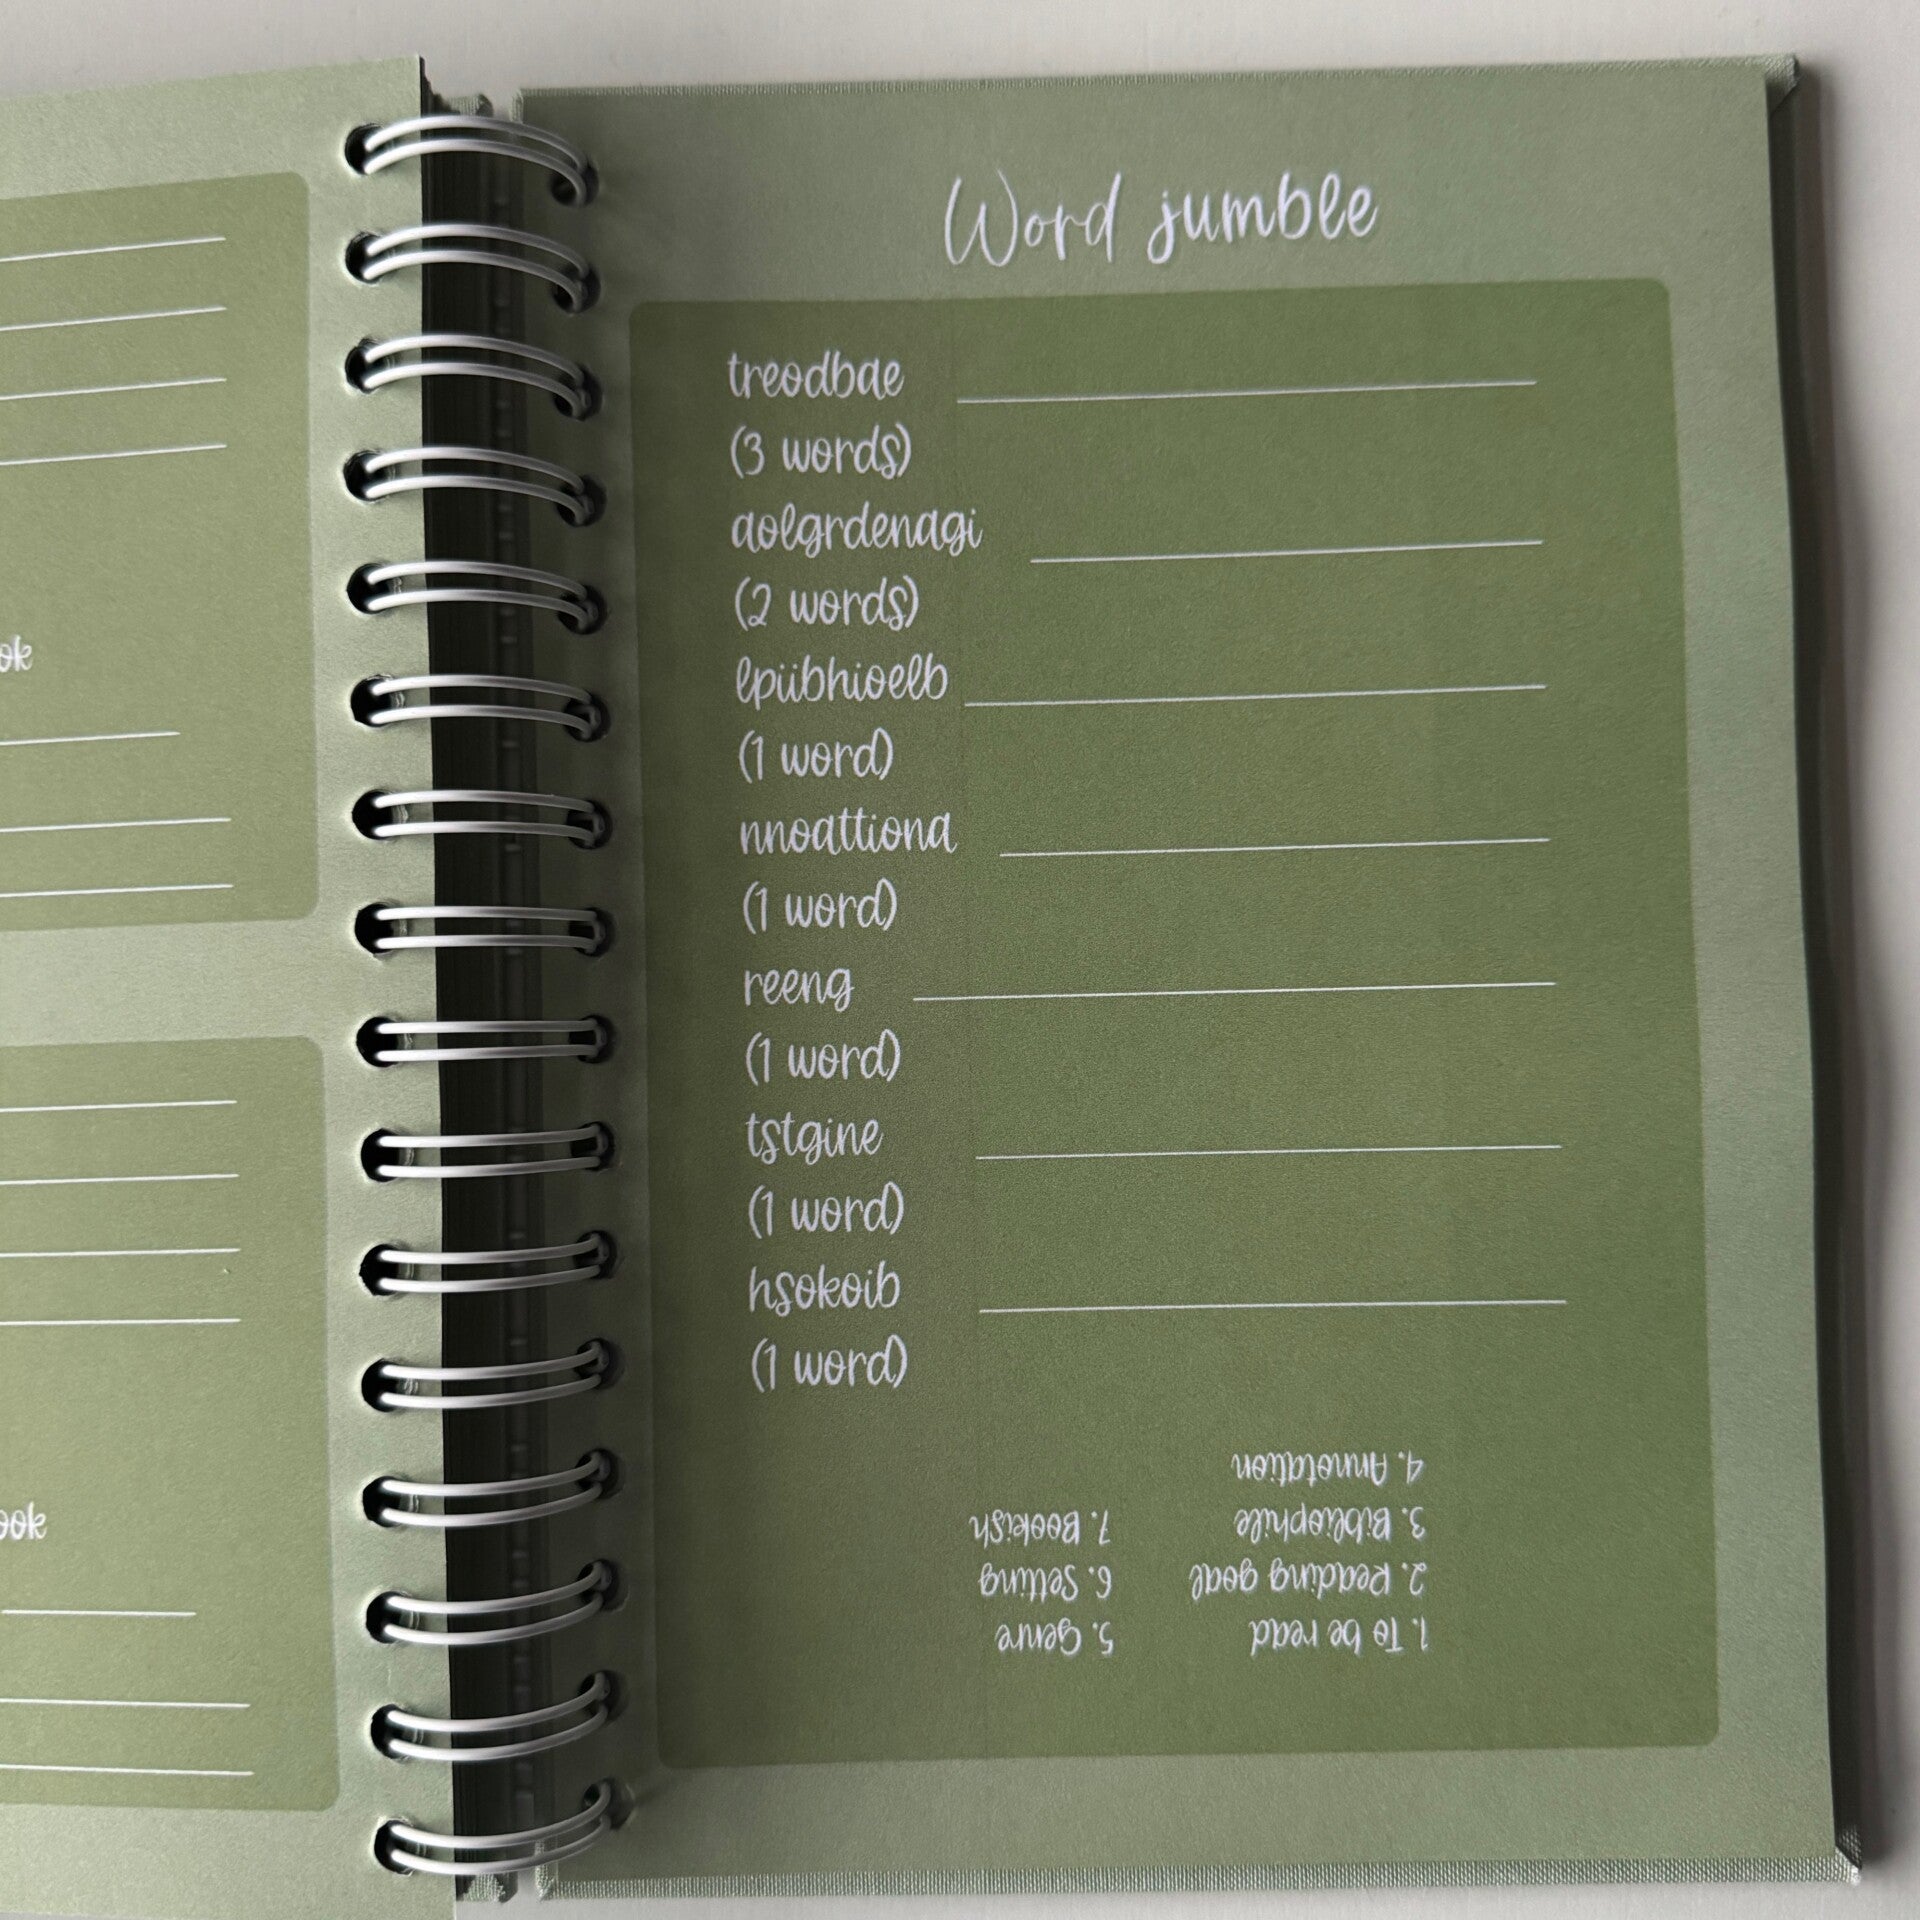 ok
ook
Word jumble
treodbae
(3 words)
aolgrdenagi
(2 words)
lpiibhioelb
(1 word)
nnoattiona
(1 word)
reeng
(1 word)
tstgine
(1 word)
hsokoib
(1 word)
1. To be read
2. Reading goal
3. Bibliophile
4. Annotation
5. Genre
6. Setting
7. Bookish